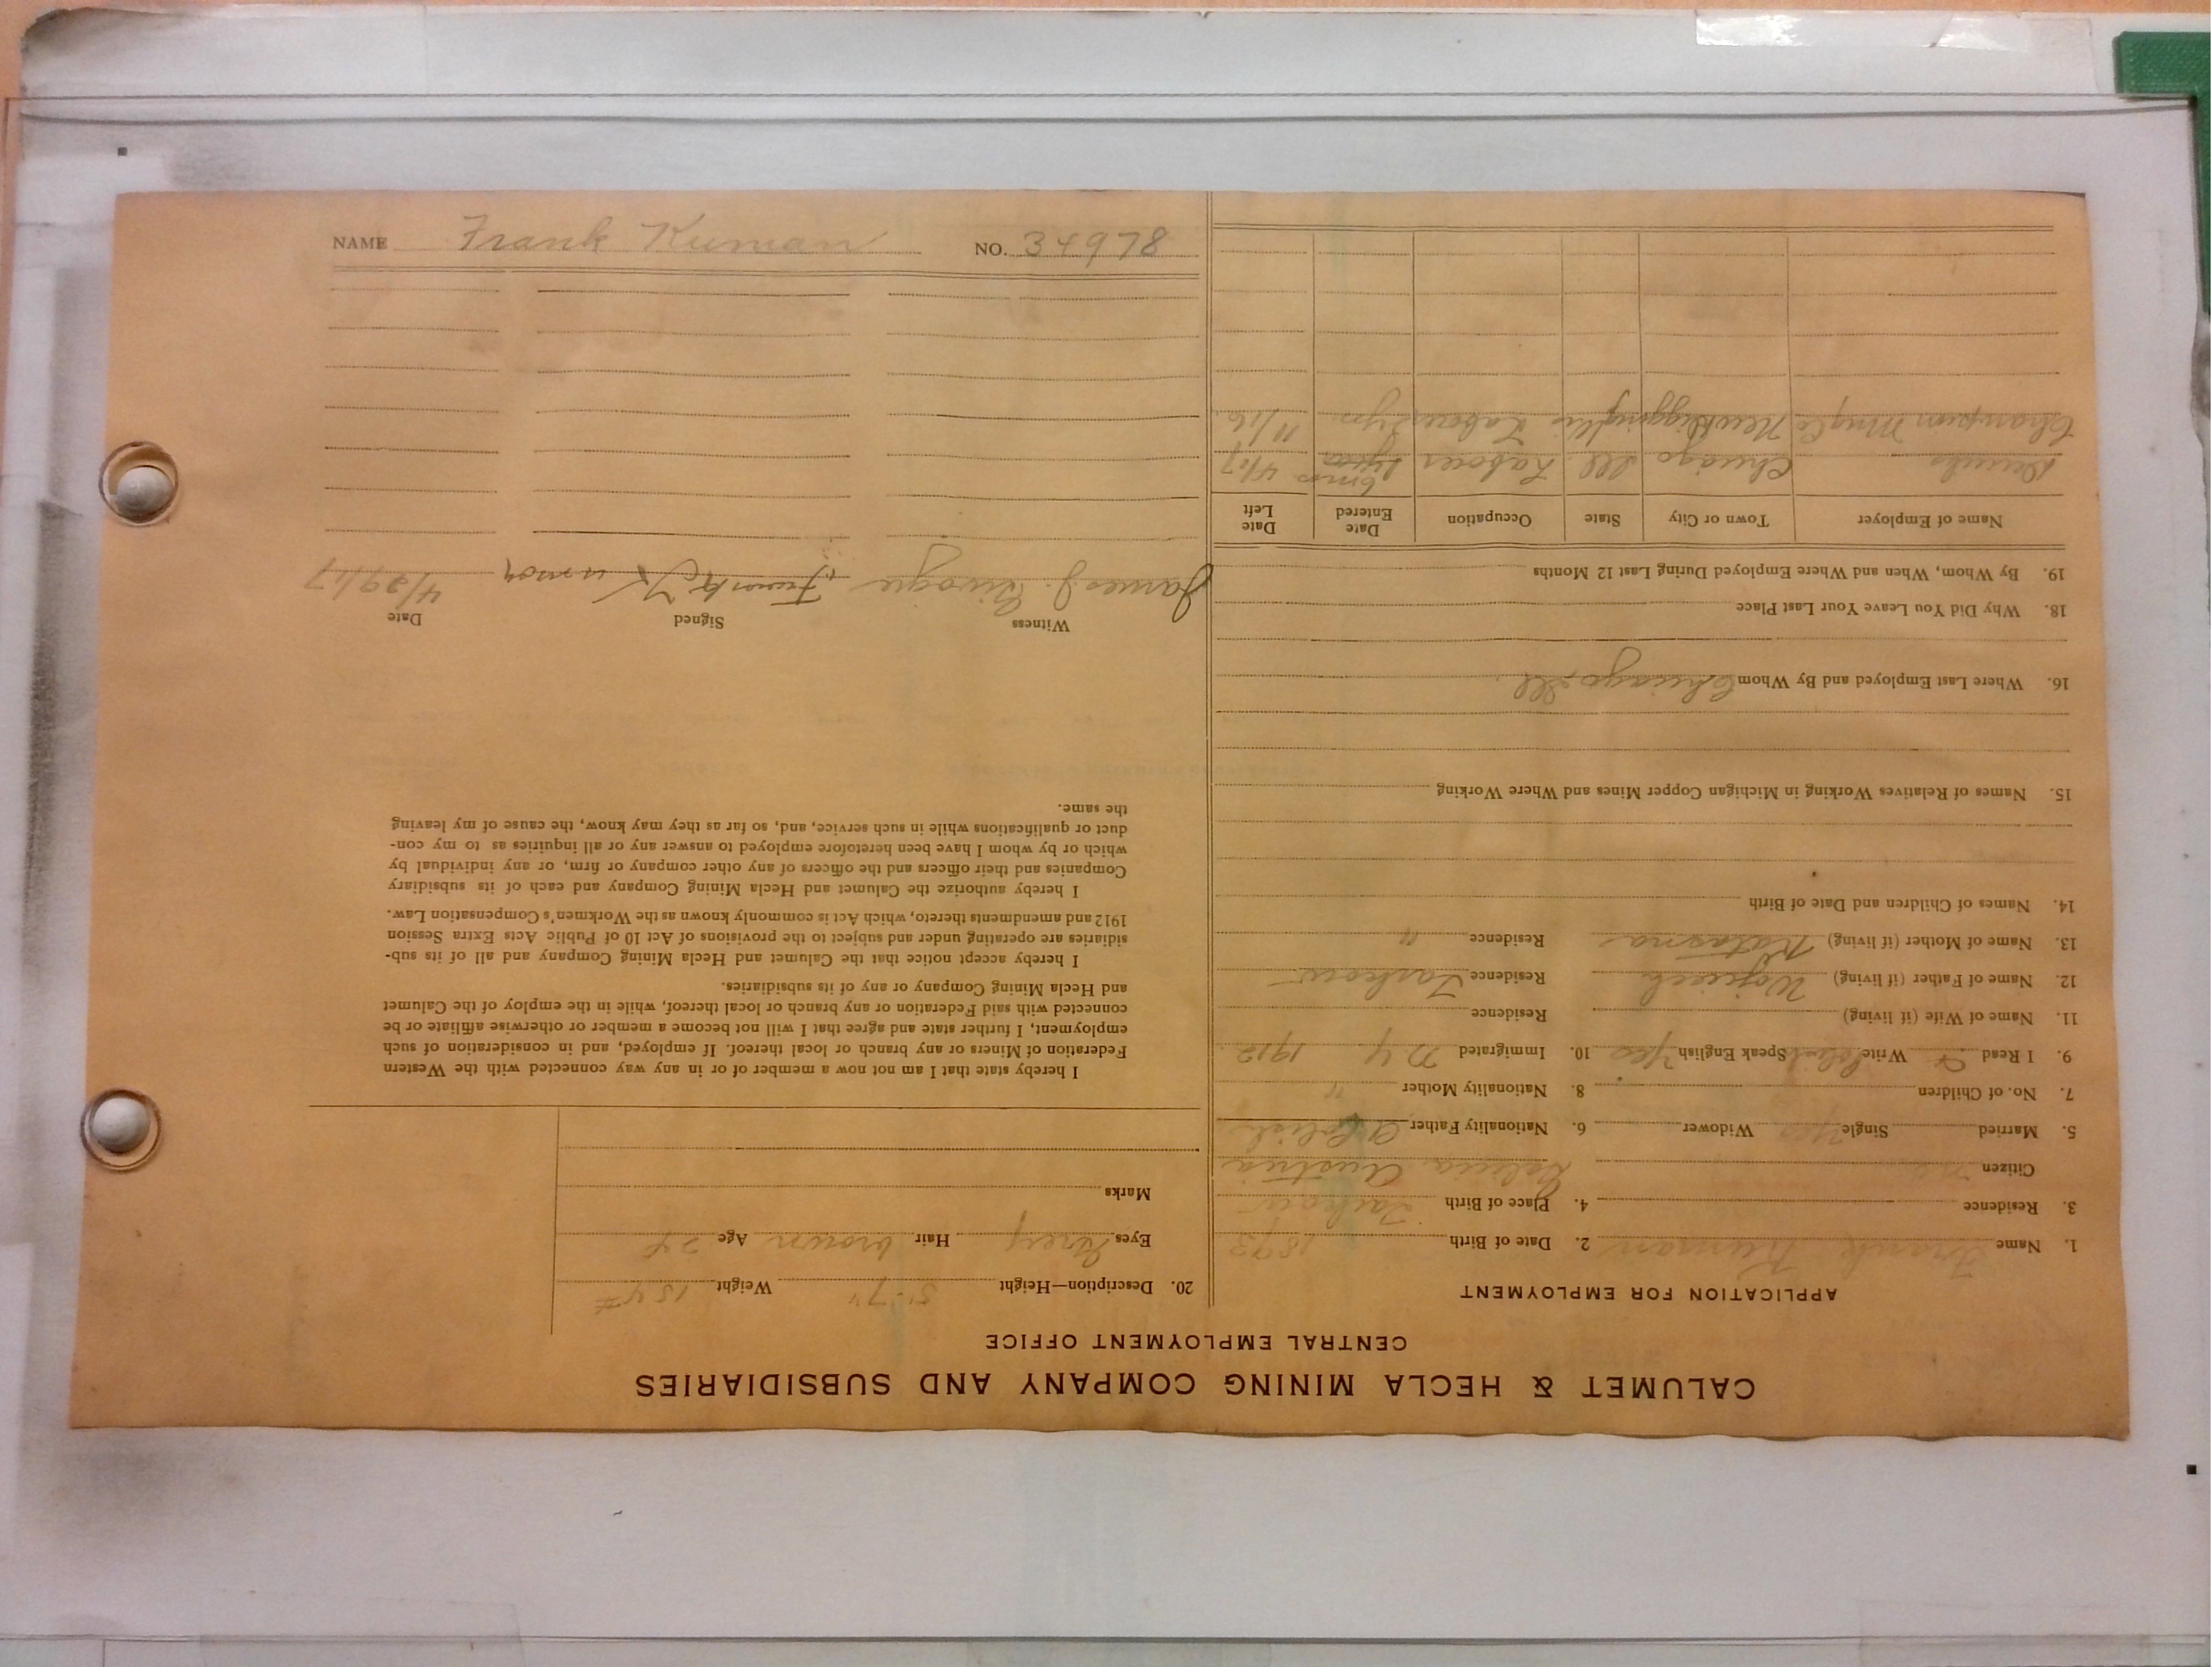 CALUMET & HECLA MINING COMPANY AND SUBSIDIARIES
CENTRAL EMPLOYMENT OFFICE
APPLICATION FOR EMPLOYMENT
1. Name Frank Kuman 2. Date of Birth 1893
3. Residence 4. Place of Birth
Citizen Galicia Austria
5. Married Single Yes Widower 6. Nationality Father Polish
7. No. of Children 8. Nationality Mother "
9. I Read Write Polish Speak English Yes 10. Immigrated N Y 1912
11. Name of Wife (if living) Residence
12. Name of Father (if living) Wojciech Residence
13. Name of Mother (if living) Residence "
14. Names of Children and Date of Birth
15. Names of Relatives Working in Michigan Copper Mines and Where Working
16. Where Last Employed and By Whom Chicago, Ill.
18. Why Did You Leave Your Last Place
19. By Whom, When and Where Employed During Last 12 Months
Name of Employer Town or City State Occupation Date Entered Date Left
Chicago Ill Laborer 6 mos 4/17
Champion Mng Co Laborer 11/16
20. Description—Height 5'-7" Weight 154#
Eyes Grey Hair brown Age 24
Marks
I hereby state that I am not now a member of or in any way connected with the Western
Federation of Miners or any branch or local thereof. If employed, and in consideration of such
employment, I further state and agree that I will not become a member or otherwise affiliate or be
connected with said Federation or any branch or local thereof, while in the employ of the Calumet
and Hecla Mining Company or any of its subsidiaries.
I hereby accept notice that the Calumet and Hecla Mining Company and all of its sub-
sidiaries are operating under and subject to the provisions of Act 10 of Public Acts Extra Session
1912 and amendments thereto, which Act is commonly known as the Workmen's Compensation Law.
I hereby authorize the Calumet and Hecla Mining Company and each of its subsidiary
Companies and their officers and the officers of any other company or firm, or any individual by
which or by whom I have been heretofore employed to answer any or all inquiries as to my con-
duct or qualifications while in such service, and, so far as they may know, the cause of my leaving
the same.
Witness Signed Date
James J. 4/29/17
NAME Frank Kuman NO. 34978